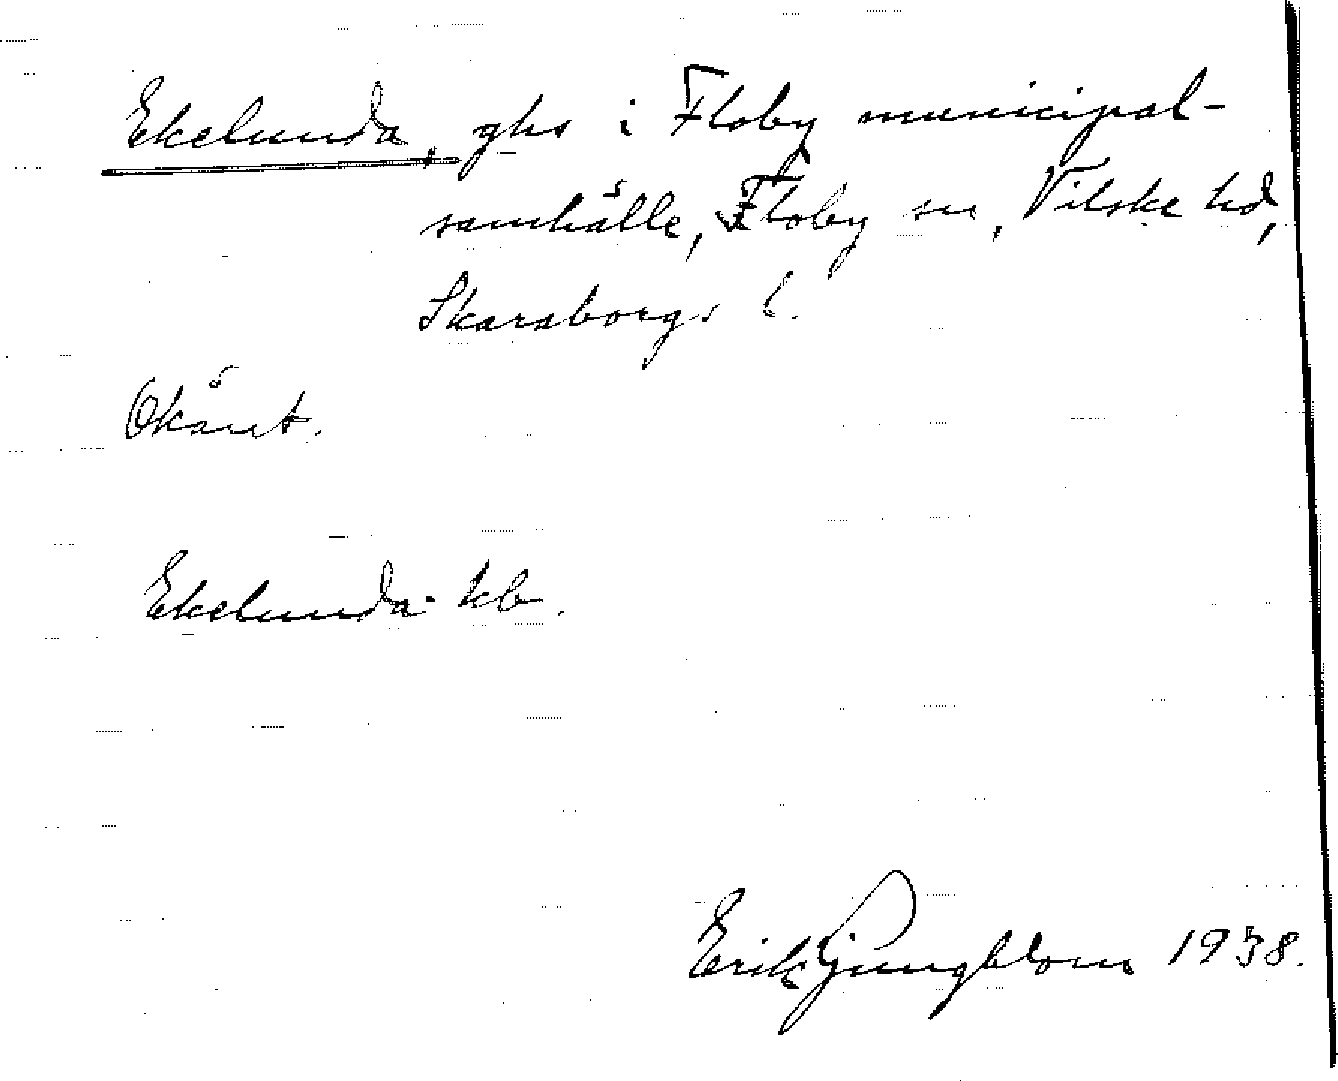 Ekelunda, ghs i Floby municipal-
samhälle, Floby sn, Vilske hd,
Skaraborgs l.
Okänt.
Ekelunda kb.
Erik Ljungblom 1938.